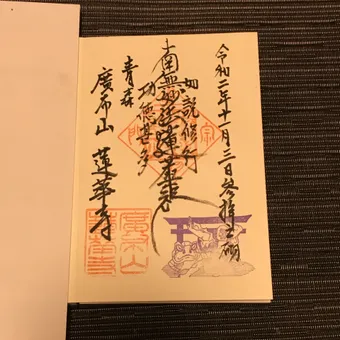 令和二年十一月三日参拝之砌
如説修行
南無妙法蓮華経
功徳甚多
青森
廣布山 蓮華寺
廣布山
蓮華寺